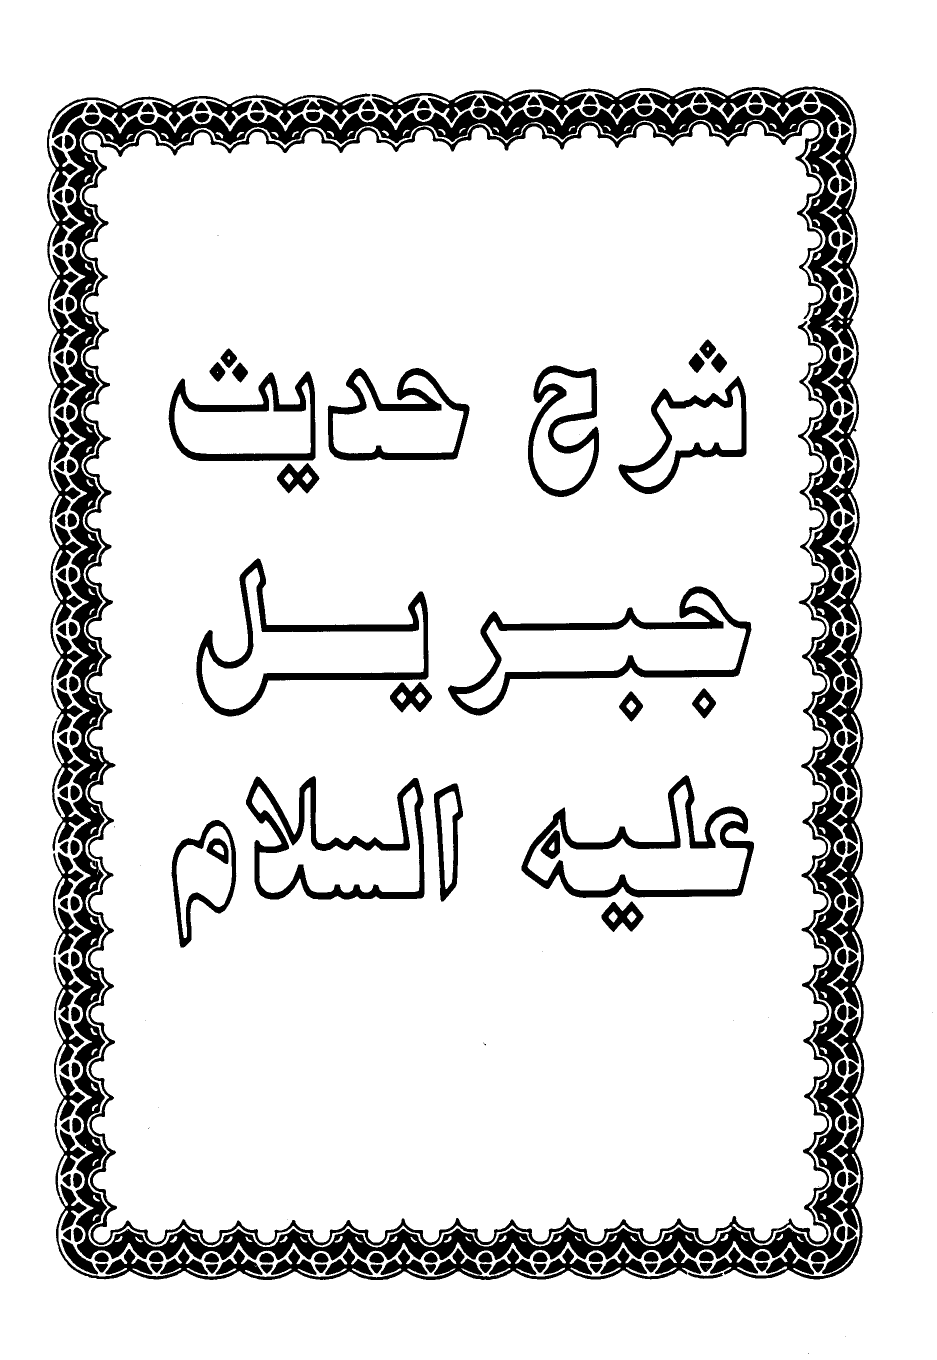 شرح حديث
جبريل
عليه السلام